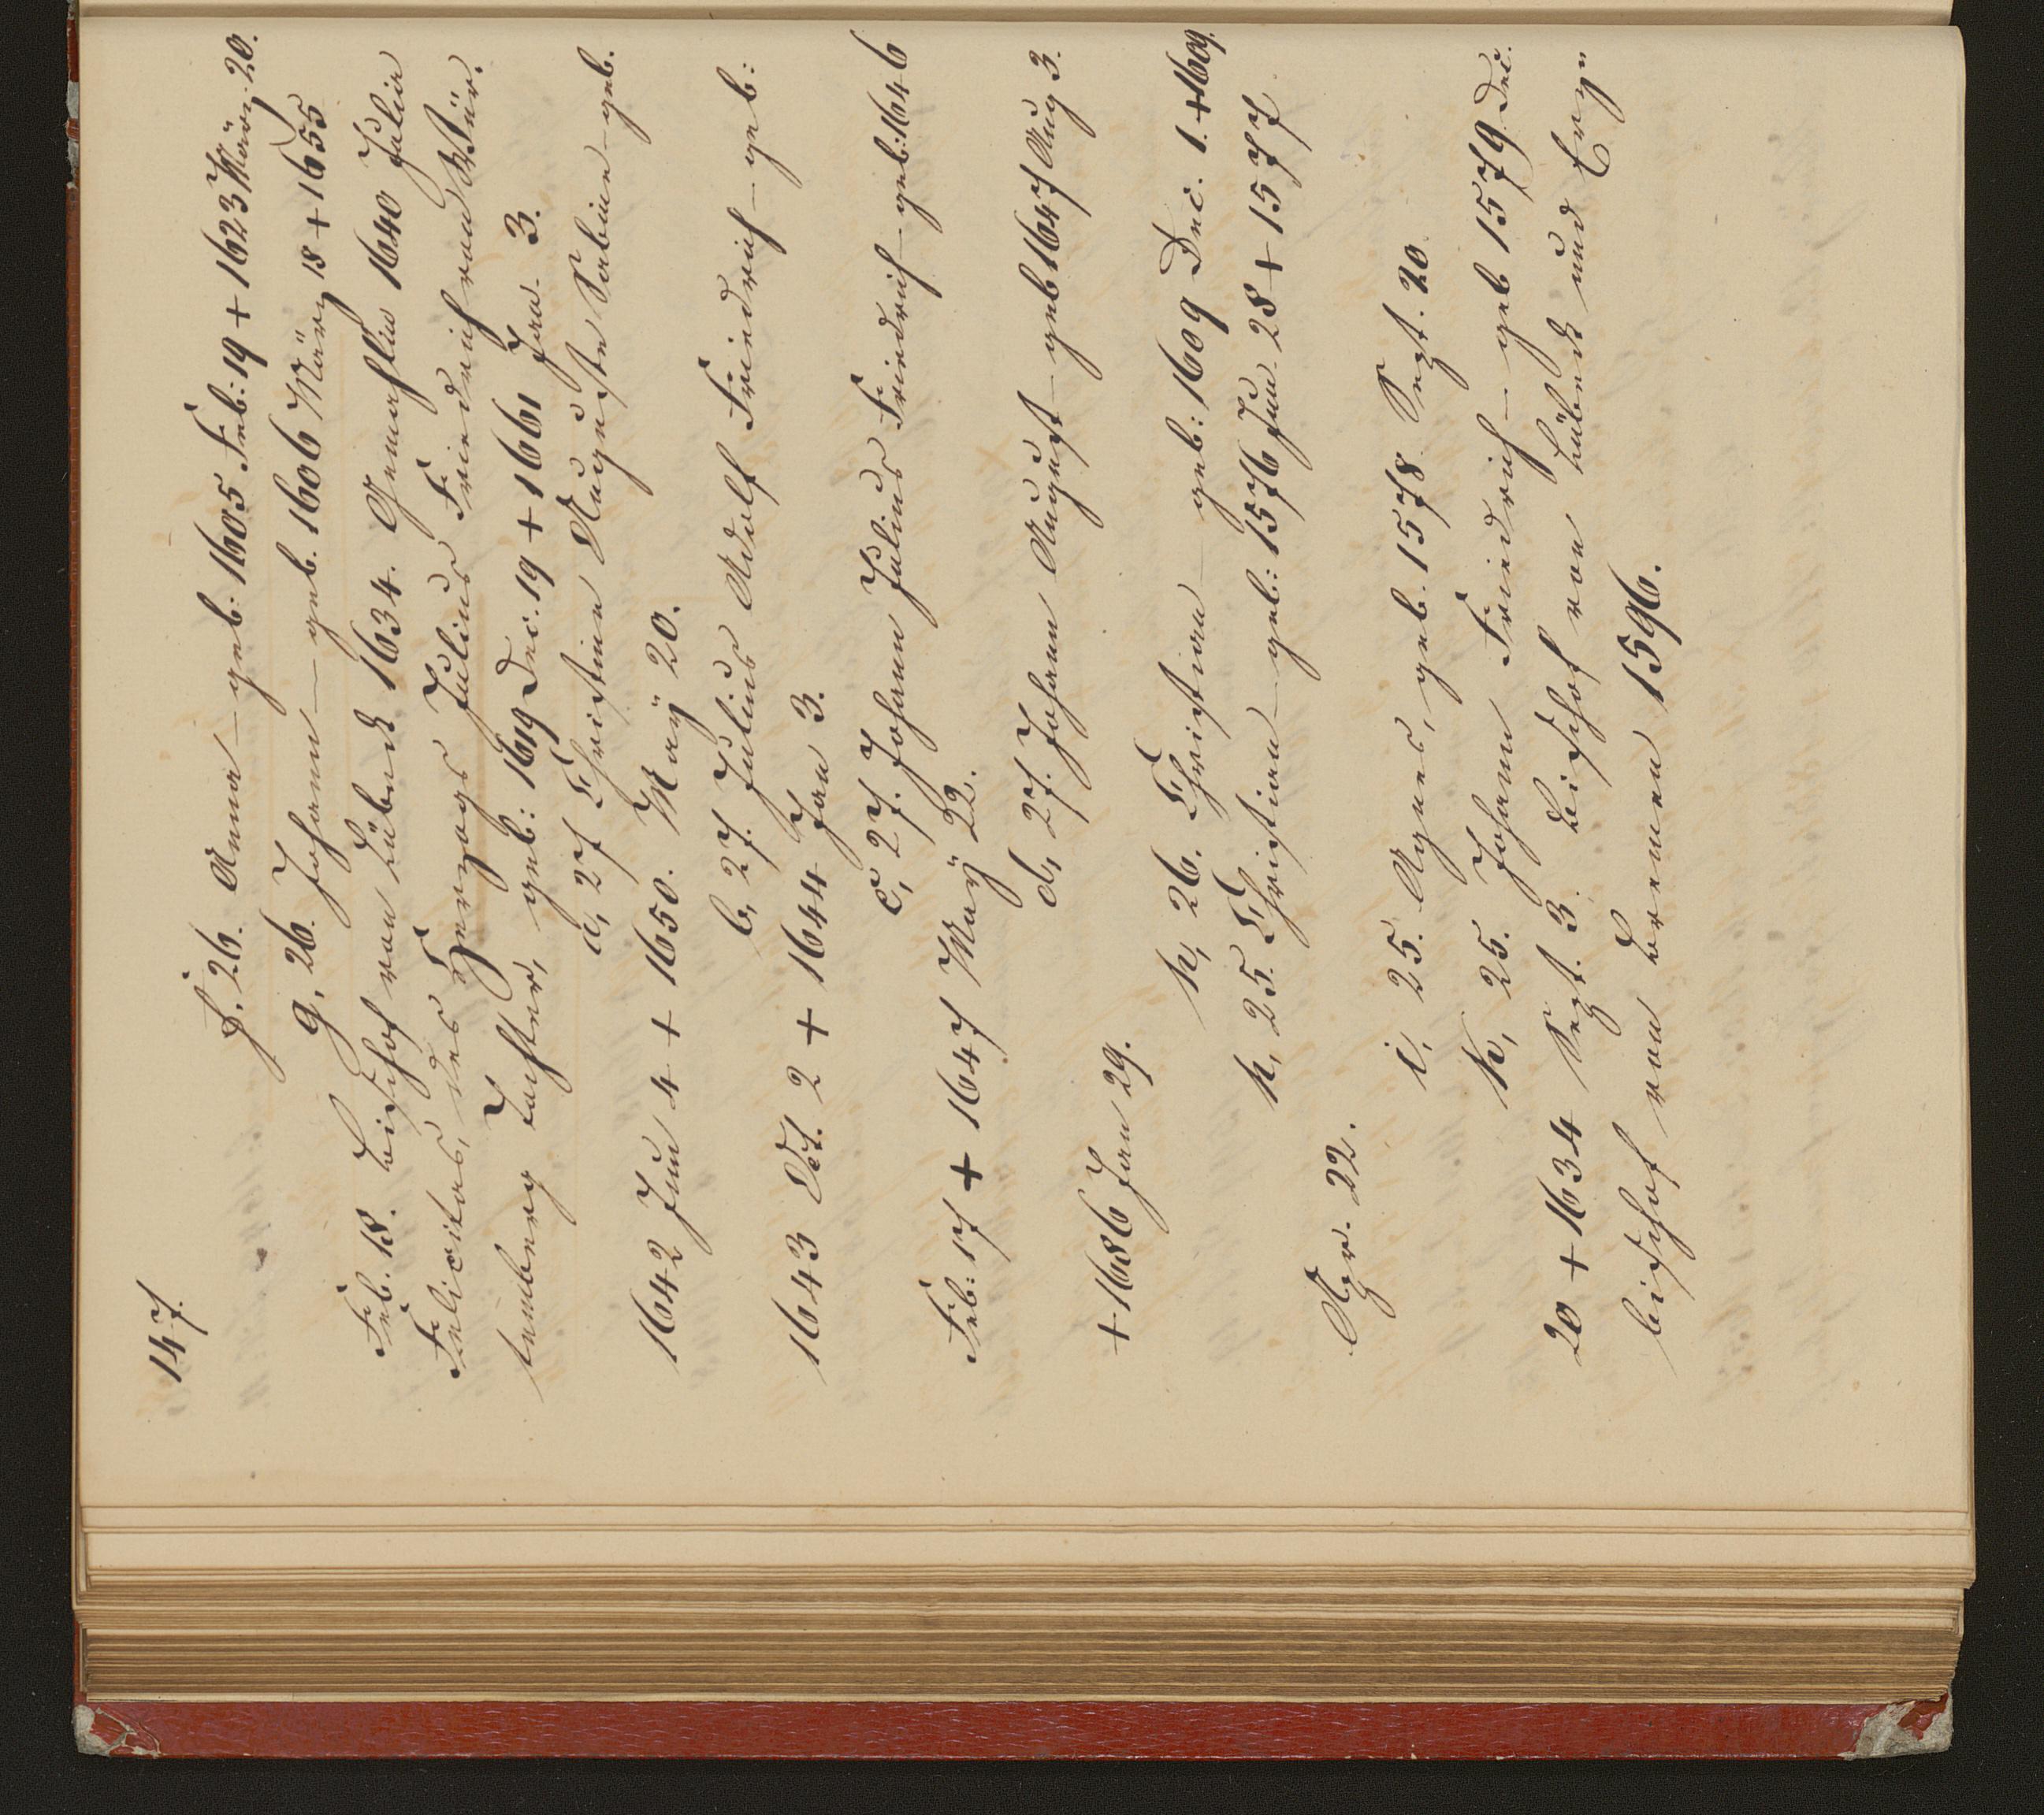 147.
f, 26. Anna – geb: 1605 Feb: 19 + 1623 März 20.
g, 26. Johann – geb. 1606 März 18 + 1655
Feb. 18. Bischof von Lübeck 1634. Gemahlin 1640 Julia
Felicitas, des Herzogs Julius Friedrich von Wür,
temberg Tochter, geb: 1619 Dec. 19 + 1661 Jan. 3.
a, 27 Christine Auguste Sabine – geb.
1642 Jun 4 + 1650. Maÿ 20.
b, 27. Julius Adolf Friedrich – geb:
1643 Oct. 2 + 1644 Jan 3.
c, 27. Johann Julius Friedrich – geb: 1646
Feb: 17 + 1647 Maÿ 22.
d, 27. Johann August – geb 1647 Aug 3.
+ 1686 Jan 29.
h, 26. Christian – geb: 1609 Dec. 1. + 1609.
h, 25. Christian – geb: 1576 Jun 28 + 1577
Apr. 22.
i, 25. Agnes, geb. 1578. Sept. 20
k, 25. Johann Friedrich – geb 1579 Dec.
20 + 1634 Sept. 3. Bischof von Lübeck und Erz„
bischof von Bremen 1596.